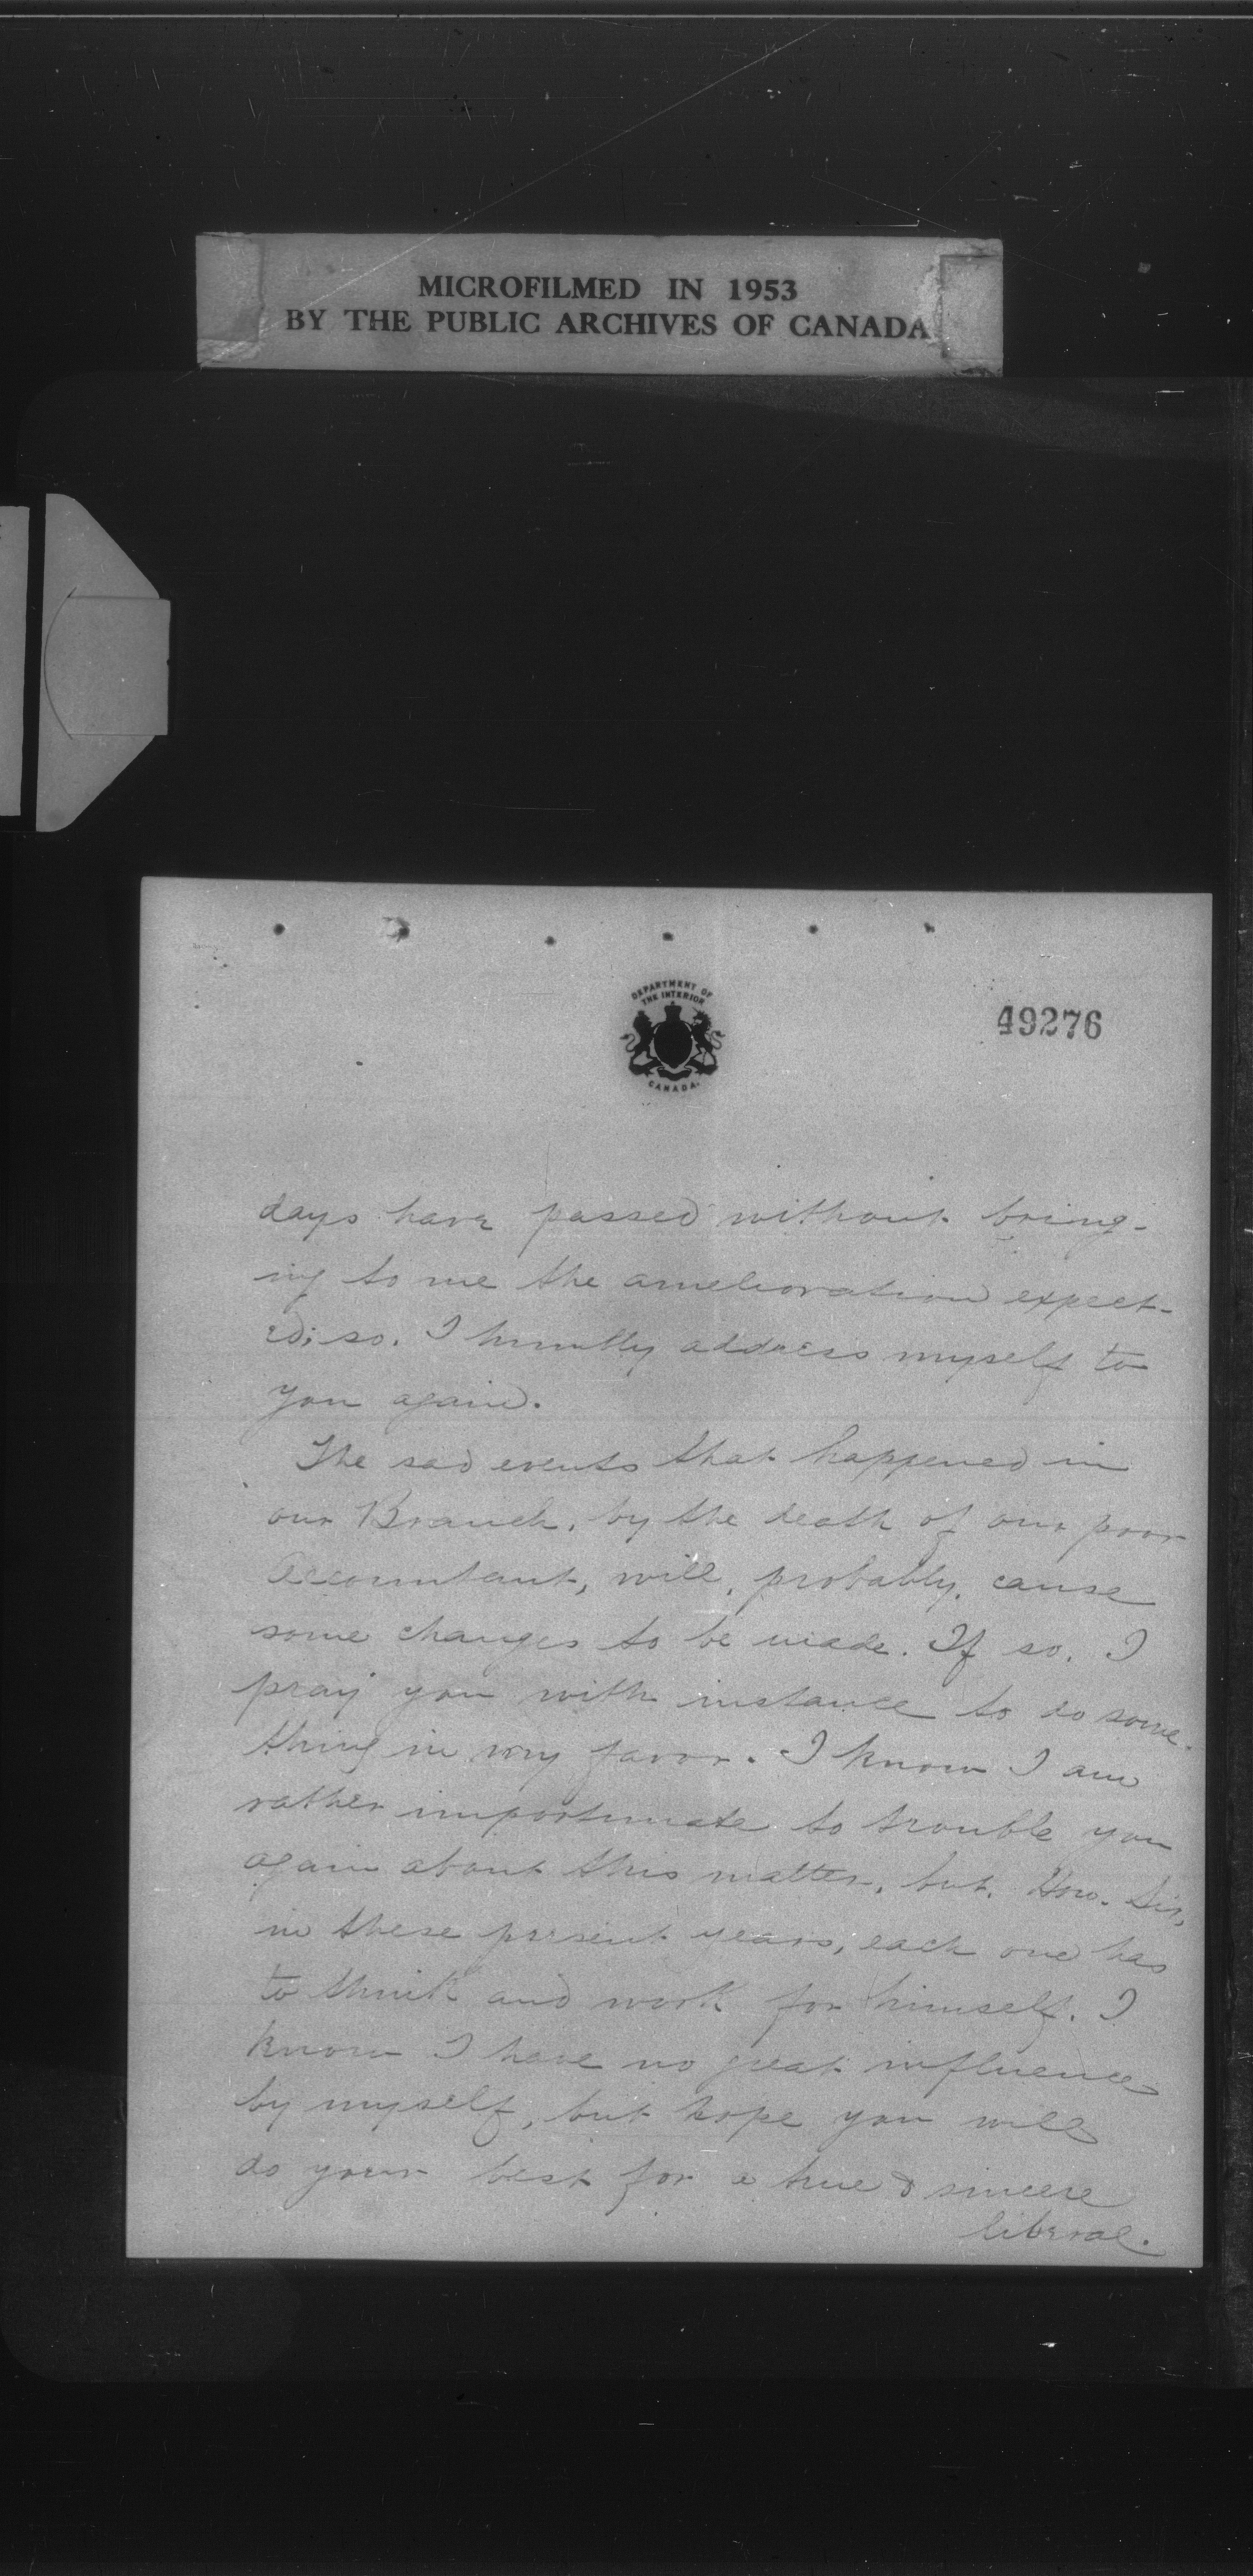 MICROFILMED IN 1953
BY THE PUBLIC ARCHIVES OF CANADA
DEPARTMENT OF
THE INTERIOR
CANADA.
49276
days have passed without bring-
ing to me the amelioration expect-
ed; so. I humbly address myself to
you again.
The sad events that happened in
our Branch, by the death of our poor
Accountant, will, probably, cause
some changes to be made. If so, I
pray you with instance to do some-
thing in my favor. I know I am
rather importunate to trouble you
again about this matter, but, Hon. Sir,
in these present years, each one has
to think and work for himself. I
know I have no great influence
by myself, but hope you will
do your best for a true & sincere
liberal.